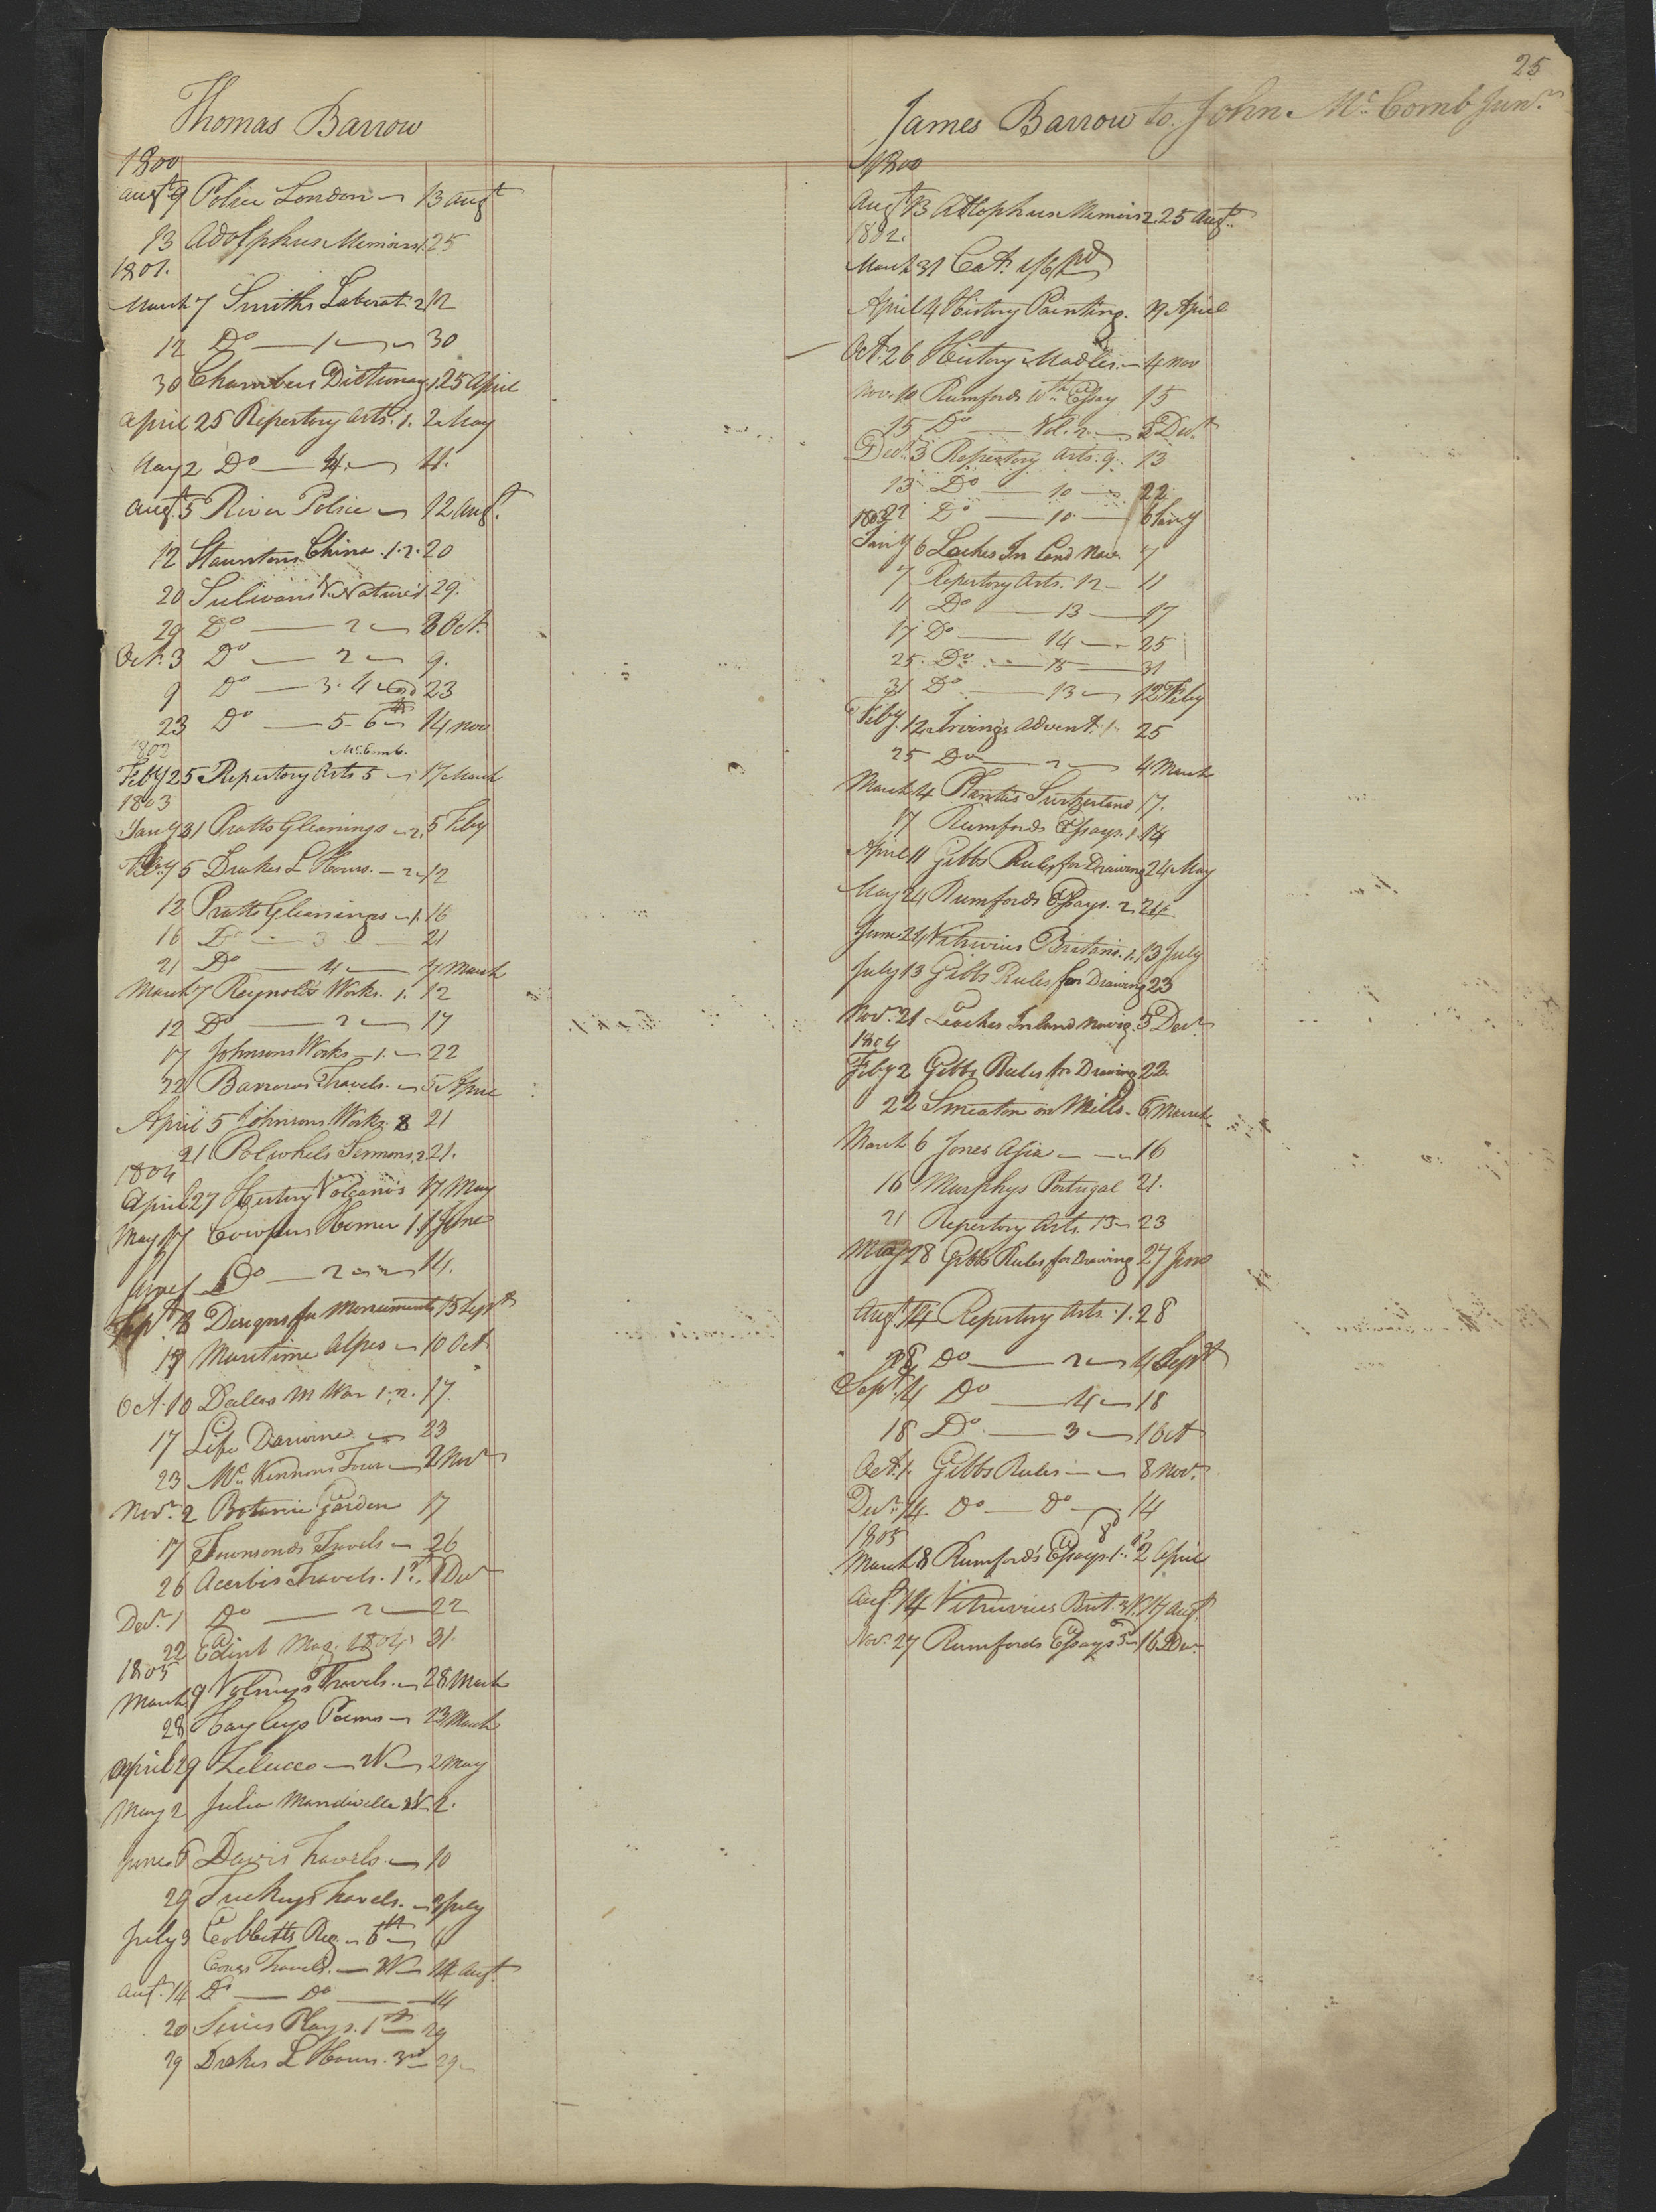 25
Thomas Barrow
1800
Augt 9 Police London 13 Augt
13 Adolphus Memoirs 1. 25
1801.
March 7 Smiths Laborat. 2 12
12 Do 1 30
30 Chambers Dictionary 1. 25 April
April 25 Repertory Arts. 1. 2 May
May 2 Do 4. 11.
Augt 5 River Police 12 Augt.
12 Stauntons China . 1. 2. 20
20 Sulivans V. Nature 1. 29.
29 Do 2 3 Oct.
Oct. 3 Do 2 9.
9 Do 3. 4 23
23 Do 5. 6th 14 Nov
1802 McComb.
Feby 25 Repertory Arts 5 17 March
1803
Jany 31 Pratts Gleanings 2. 5 Feby
Feby 5 Drakes L Hours. 2 12
12 Pratts Gleanings 1. 16
16 Do 3 21
21 Do 4 7 March
March 7 Reynolds Works. 1. 12
12 Do 2 17
17 Johnsons Works 1. 22
22 Barrows Travels. 5 April
April 5 Johnsons Works. 2 21
21 Polwhels Sermons. 2 21.
1804
April 27 History Volcano's 17 May
May 17 Cowpers Homer 1. 1 June
June 1 Do 2 14.
Sept. 8 Designs for Monuments 15 Sept
Maritime Alpes 10 Oct.
Oct. 10 Dallas M War 1. 2. 17.
17 Life Darwine 23
23 McKinnons Tour 2 Nov
Nov. 2 Botanic Garden 17
17 Townsends Travels 26
26 Acerbis Travels. 1st. 1 Decr
Decr. 1 Do 2 22
22 Edinb Mag. 1804. 31.
1805
March 9 Volneys Travels. 28 March
28 Hayleys Poems 23 March
April 29 Zelucco 2V 2 May
May 2 Julia Mandeville 2V 2.
June 6 Davis Travels. 10
29 Tuckeys Travels. 3 July
July 3 Cobbetts Reg. 6th 6
Travels. 2V 14 Augt.
Augt. 14 Do Do 14
20 Series Plays. 1st 29
29 Drakes L Hours. 3rd 29
James Barrow to John McComb Junr.
1800
Augt 13 Adolphus Memoirs 2. 25 Augt.
1802.
March 31 Cat. 1/6 pd
April 4 History Painting. 19 April
Oct. 26 History Madles. 4 Nov
Nov. 10 Rumfords 10th Essay 15
15 Do Vol. 2. 3 Decr.
Decr. 3 Repertory Arts. 9. 13
13 Do 10 22
1803 22 Do 10 6 Jany
Jany 6 Leaches In land Nav. 7
7 Repertory Arts. 12 11
11 Do 13 17
17 Do 14 25
25. Do 15 31
31 Do 13 12 Feby
Feby. 12 Irving's Advent. 1. 25
25 Do 2 4 March
March 4 Plantas Switzerland 17.
17 Rumfords Essays. 1. 18
April 11 Gibbs Rules for Drawing 24 May
May 24 Rumfords Essays. 2. 24
June 24 Vitruvius Britanic. 1. 13 July
July 13 Gibbs Rules for Drawing 23
Novr. 21 Leaches Inland Navig. 3 Decr
1804
Feby 2 Gibbs Rules for Drawing 22.
22 Smeaton on Mills. 6 March
March 6 Jones Asia 16
16 Murphys Portugal 21.
21 Repertory Arts. 13 23
May 28 Gibbs Rules for Drawing 27 June
Augt. 14 Repertory Arts. 1. 28
28 Do 2 4 Sept
Sept. 4 Do 4 18
18 Do 3 1 Oct
Oct. 1. Gibbs Rules 8 Nov.
Decr. 14 Do Do 14
1805
March 8 Rumford's Essays. 1. 2 April
Augt 14 Vitruvius Brit. 3V. 17 Augt.
Nov. 27 Rumfords Essays 3d 16 Decr.